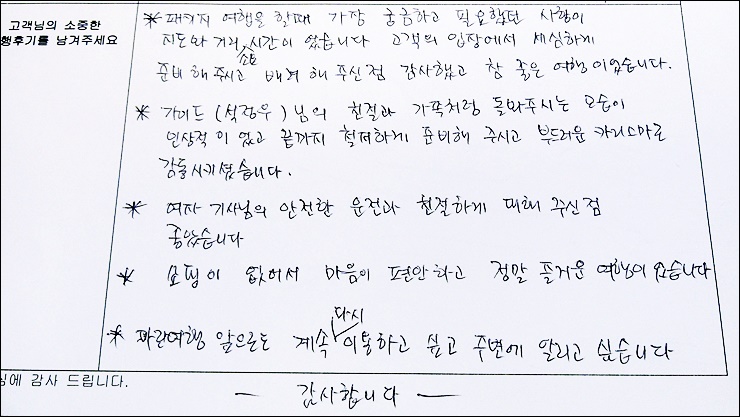 고객님의 소중한
행후기를 남겨주세요
* 패키지 여행을 할때 가장 궁금하고 필요했던 사항이
지도와 거리, 시간이 었습니다 고객의 입장에서 세심하게
소요
준비해 주시고 배려 해 주신점 감사했고 참 좋은 여행이었습니다.
* 가이드 (석정우) 님의 친절과 가족처럼 돌봐주시는 모습이
인상적 이 었고 끝까지 철저하게 준비해 주시고 부드러운 카리스마로
감동시키셨습니다.
* 여자 기사님의 안전한 운전과 친절하게 대해 주신점
좋았습니다
* 쇼핑이 없어서 마음이 편안하고 정말 즐거운 여행이 었습니다
다시
* 파란여행 앞으로도 계속 이용하고 싶고 주변에 알리고 싶습니다
님에 감사 드립니다.
— 감사합니다 —